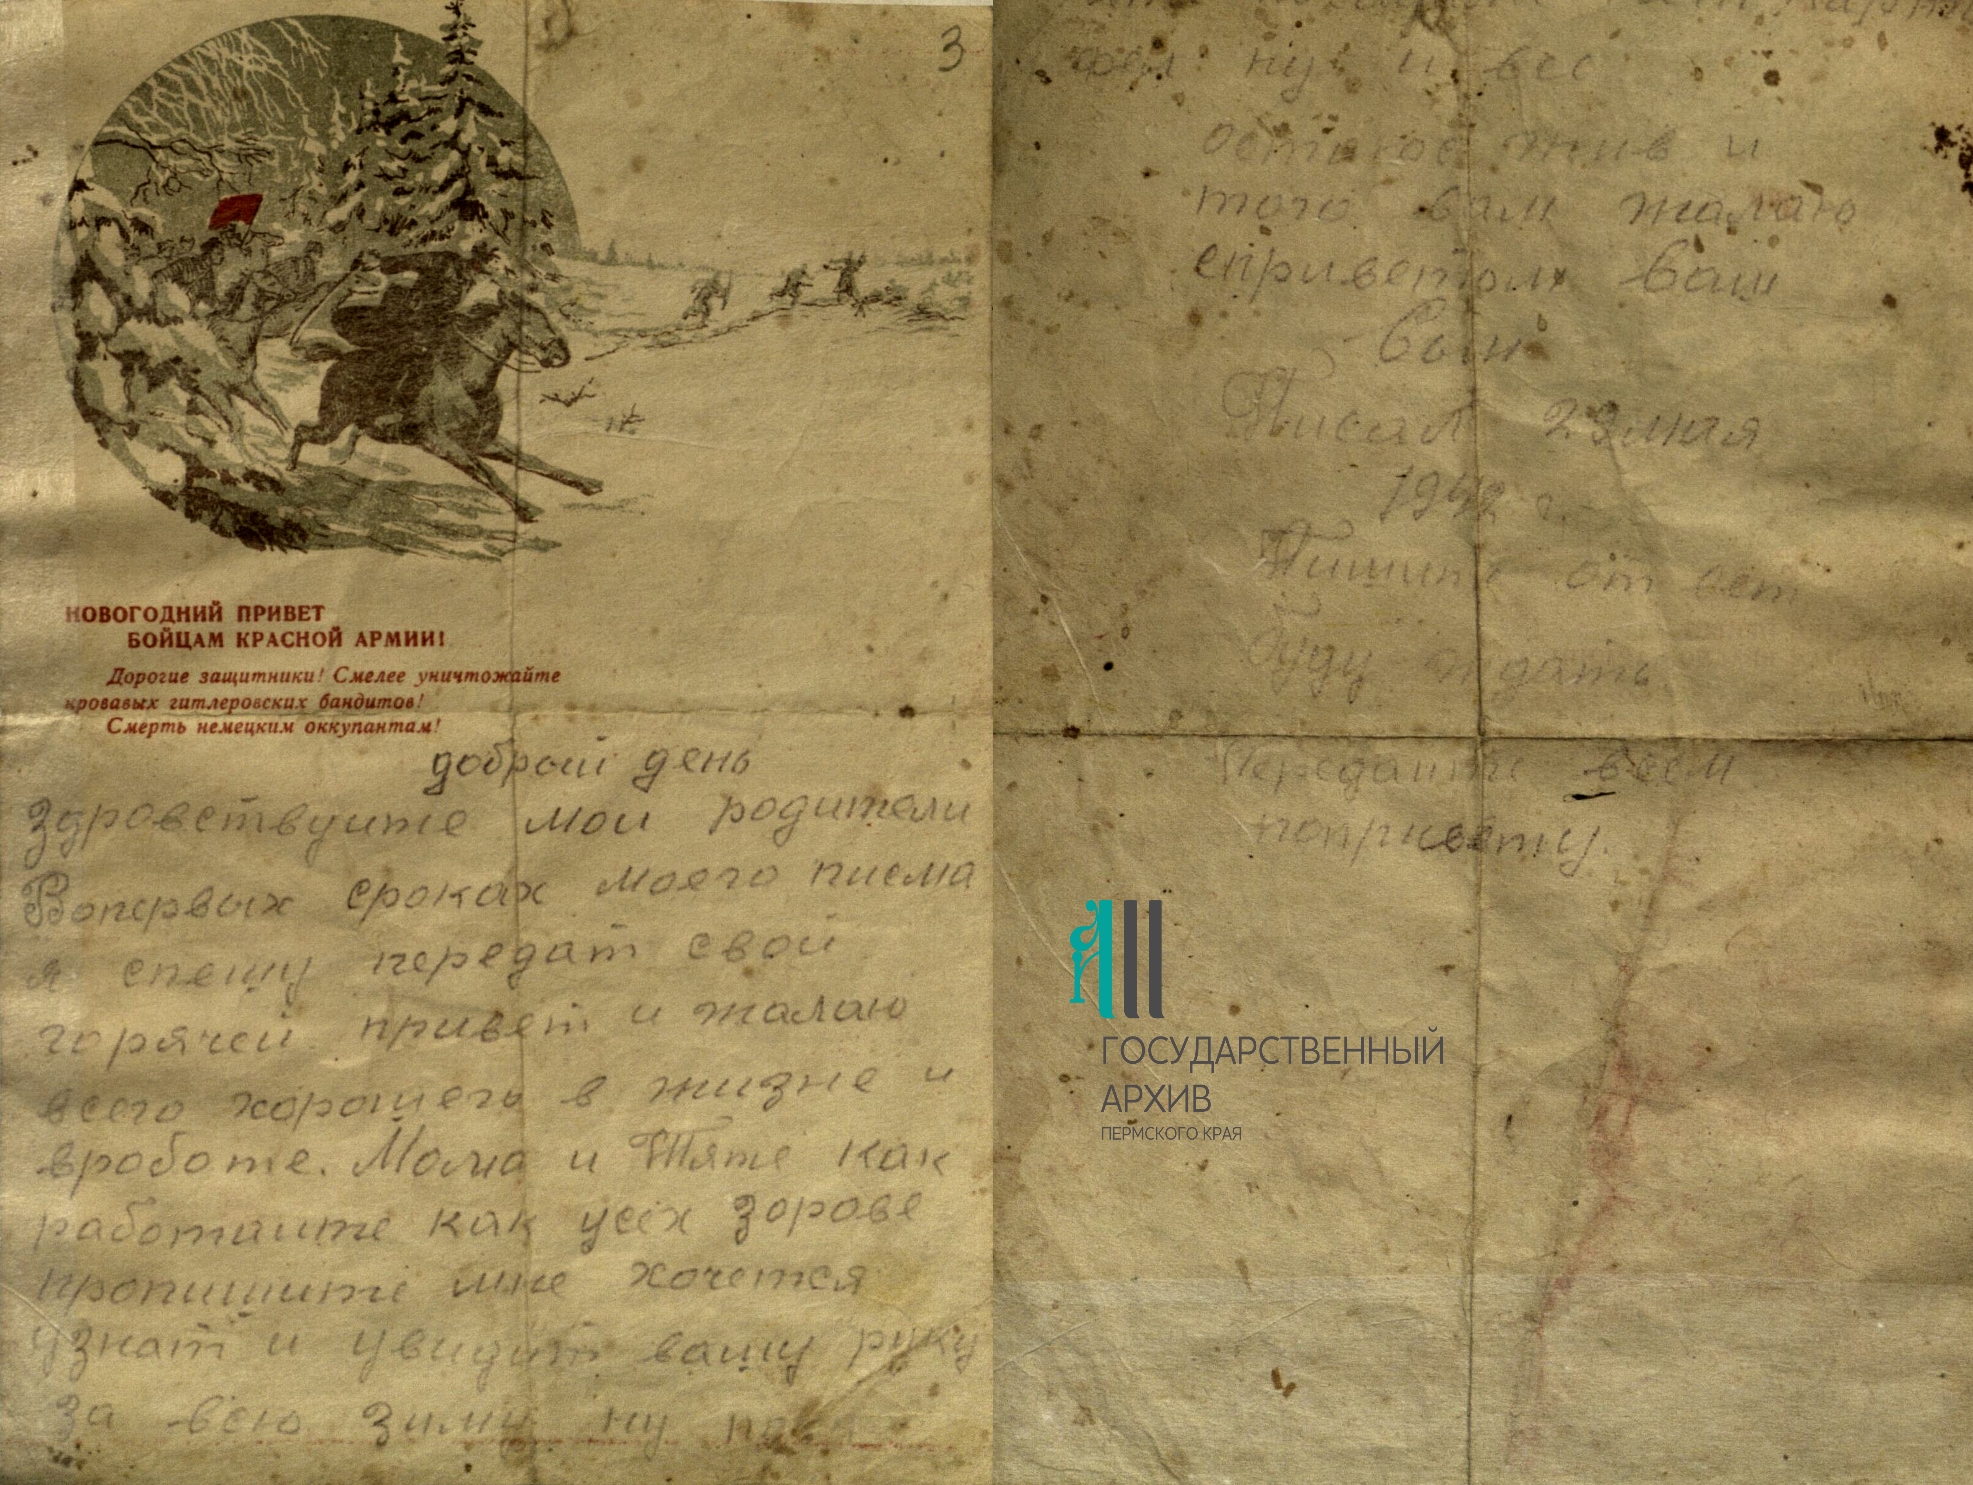 3
НОВОГОДНИЙ ПРИВЕТ
БОЙЦАМ КРАСНОЙ АРМИИ!
Дорогие защитники! Смелее уничтожайте
кровавых гитлеровских бандитов!
Смерть немецким оккупантам!
добрый день
Здравствуите мои родители
Вопервых сроках моего писма
я спешу передат свой
горячей привет и жалаю
всего хорошего в жизне и
вроботе. Мама и Тяте как
работаите как усех здорове
пропишите мне хочется
узнат и увидит вашу руку
за всю зиму ну
ну и вес
остаюс жив и
того вам жалаю
сприветом ваш
Сын
Писал 23 мая
1942 г.
Пишите от вет
Буду ждать
Передаите всем
поприветy.
ГОСУДАРСТВЕННЫЙ
АРХИВ
ПЕРМСКОГО КРАЯ